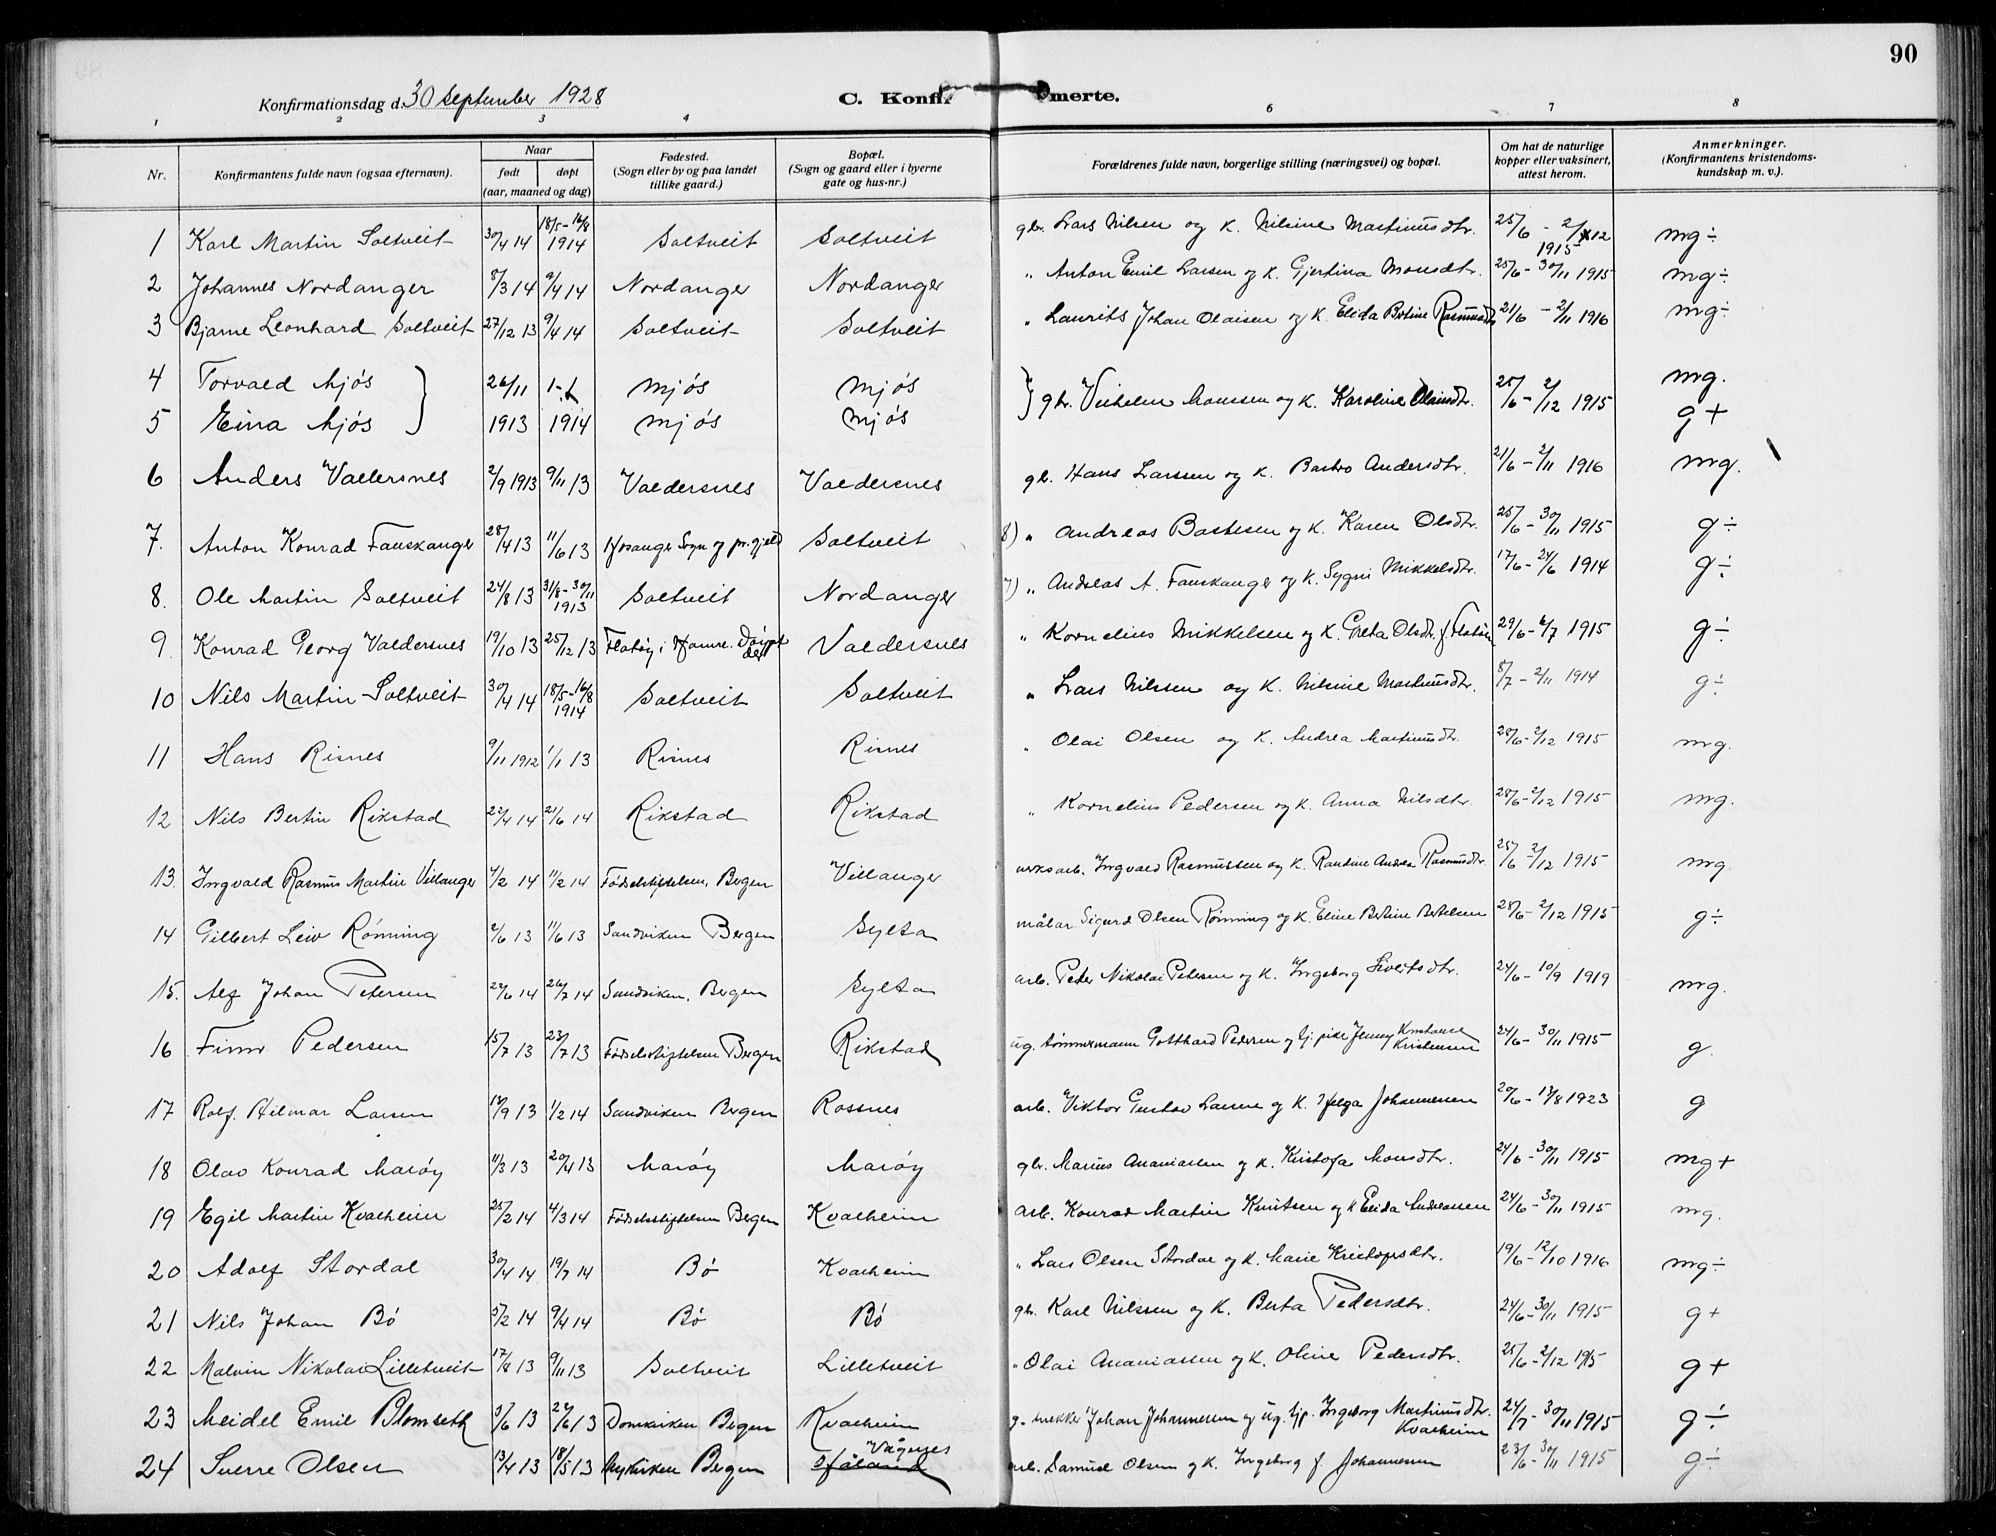 90
Konfirmationsdag d. 30 september 1928
C. Konfir merte.
1 2 3 4 6 7 8
Nr. Konfirmantens fulde navn (ogsaa efternavn). Naar født døpt (aar, maaned og dag) Fødested. (Sogn eller by og paa landet tillike gaard.) Bopæl. (Sogn og gaard eller i byerne gate og hus-nr.) Forældrenes fulde navn, borgerlige stilling (næringsvei) og bopæl. Om hat de naturlige kopper eller vaksinert, attest herom. Anmerkninger. (Konfirmantens kristendoms-kundskap m. v.).
1 Karl Martin Soltveit 30/4 14 18/5-16/8 1914 Soltveit Soltveit gbr. Lars Nilsen og k. Nilsine Martinusdtr. 25/6 - 2/12 1915 mg÷
2 Johannes Nordanger 8/3 14 9/4 14 Nordanger Nordanger " Anton Emil Larsen og k. Gjertina Monsdtr. 25/6 - 30/11 1915 mg÷
3 Bjarne Leonhard Soltveit 27/12 13 9/4 14 Soltveit Soltveit " Laurits Johan Olaisen og k. Elida Bertine Rasmusdtr 21/6 - 2/11 1916 mg÷
4 Torvald Mjøs } 26/11 1-1 Mjøs Mjøs } gbr. Vilhelm Monssen og k. Karoline Olaisdtr. 25/6 - 2/12 1915 mg.
5 Eina Mjøs 1913 1914 Mjøs Mjøs g+
6 Anders Valdersnes 2/9 1913 9/11 13 Valdersnes Valdersnes gb. Hans Larssen og k. Barbro Andersdtr. 21/6 - 2/11 1916 mg.
7. Anton Konrad Fauskanger 28/4 13 11/6 13 Hosanger Sogn og pr.gjeld Soltveit 8) " Andreas Bastesen og k. Karen Olsdtr. 25/6 - 30/11 1915 g÷
8. Ole Martin Soltveit 24/8 13 31/8-30/11 1913 Soltveit Nordanger 7) " Andreas A. Fauskanger og k. Sygni Mikkelsdtr. 17/6 - 24/6 1914 g÷
9 Konrad Georg Valdersnes 19/10 13 25/12 13 Flatøy i Hamre. Døypt der Valdersnes " Kornelius Mikkelsen og k. Greta Olsdtr. f. Flatøen 29/6 - 6/7 1915 g÷
10 Nils Martin Soltveit 30/4 14 18/5-16/8 1914 Soltveit Soltveit " Lars Nilssen og k. Nilsine Martinusdtr. 8/7 - 2/11 1914 g÷
11 Hans Risnes 9/11 1912 1/1 13 Risnes Risnes " Olai Olsen og k. Andrea Martinusdtr. 28/6 - 2/12 1915 mg.
12 Nils Bertin Rikstad 22/4 14 21/6 14 Rikstad Rikstad " Kornelius Pedersen og k. Anna Nilsdtr. 28/6 - 2/12 1915 mg.
13. Ingvald Rasmus Martin Villanger 4/2 14 11/2 14 Fødselsstiftelsen, Bergen Villanger verksarb. Ingvald Rasmussen og k. Randine Andrea Rasmusdtr. 25/6 - 2/12 1915 mg.
14 Gilbert Leiv Rønning 2/6 13 11/6 13 Sandviken Bergen Sylta målar Sigurd Olsen Rønning og k. Eline Bertine Bertelsen 28/6 - 2/12 1915 g÷
15. Alf Johan Petersen 22/6 14 26/7 14 Sandviken, Bergen Sylta arb. Peter Nikolai Petersen og k. Ingeborg Sivertsdtr. 24/6 - 10/9 1919 mg.
16 Finn Pedersen 15/7 13 23/7 13 Fødselsstiftelsen Bergen Rikstad ug. tømmermann Gotthard Pedersen og Gj. pike Jenny Konstanse Kristensen 24/6 - 30/11 1915 g.
17 Rolf Hilmar Larsen 12/9 13 1/2 14 Sandviken Bergen Rossnes arb. Viktor Gustav Larsen og k. Helga Johannesen 20/6 - 17/8 1923 g
18 Olav Konrad Marøy 11/3 13 20/4 13 Marøy Marøy gbr. Marius Ananiassen og k. Kristofa Monsdtr. 24/6 - 30/11 1915 mg+
19 Egil Martin Kvalheim 25/2 14 4/3 14 Fødselsstiftelsen Bergen Kvalheim arb. Konrad Martin Knutsen og k Elida Andreassen 24/6 - 30/11 1915 mg.
20 Adolf Stordal 30/4 14 19/7 14 Bø Kvalheim " Lars Olsen Stordal og k. Marie Kristofersdtr. 19/6 - 12/10 1916 mg÷
21 Nils Johan Bø 5/2 14 9/4 14 Bø Bø gbr. Karl Nilssen og k. Berta Pedersdtr. 24/6 - 30/11 1915 g+
22 Malvin Nikolai Lilletveit 17/8 13 9/11 13 Soltveit Lilletveit " Olai Ananiassen og k. Oline Pedersdtr. 25/6 - 2/12 1915 g+
23 Meidel Emil Blomseth 5/6 13 22/6 13 Domkirken Bergen Kvalheim g. snekker Johan Johannessen og ug. Gjp. Ingeborg Martinusdtr. Kvalheim 24/7 - 30/11 1915 g÷
24 Sverre Olsen 13/4 13 18/5 13 Nykirken Bergen Vågenes arb. Samuel Olsen og k. Ingeborg f. Johannesen 23/6 - 30/11 1915 g÷